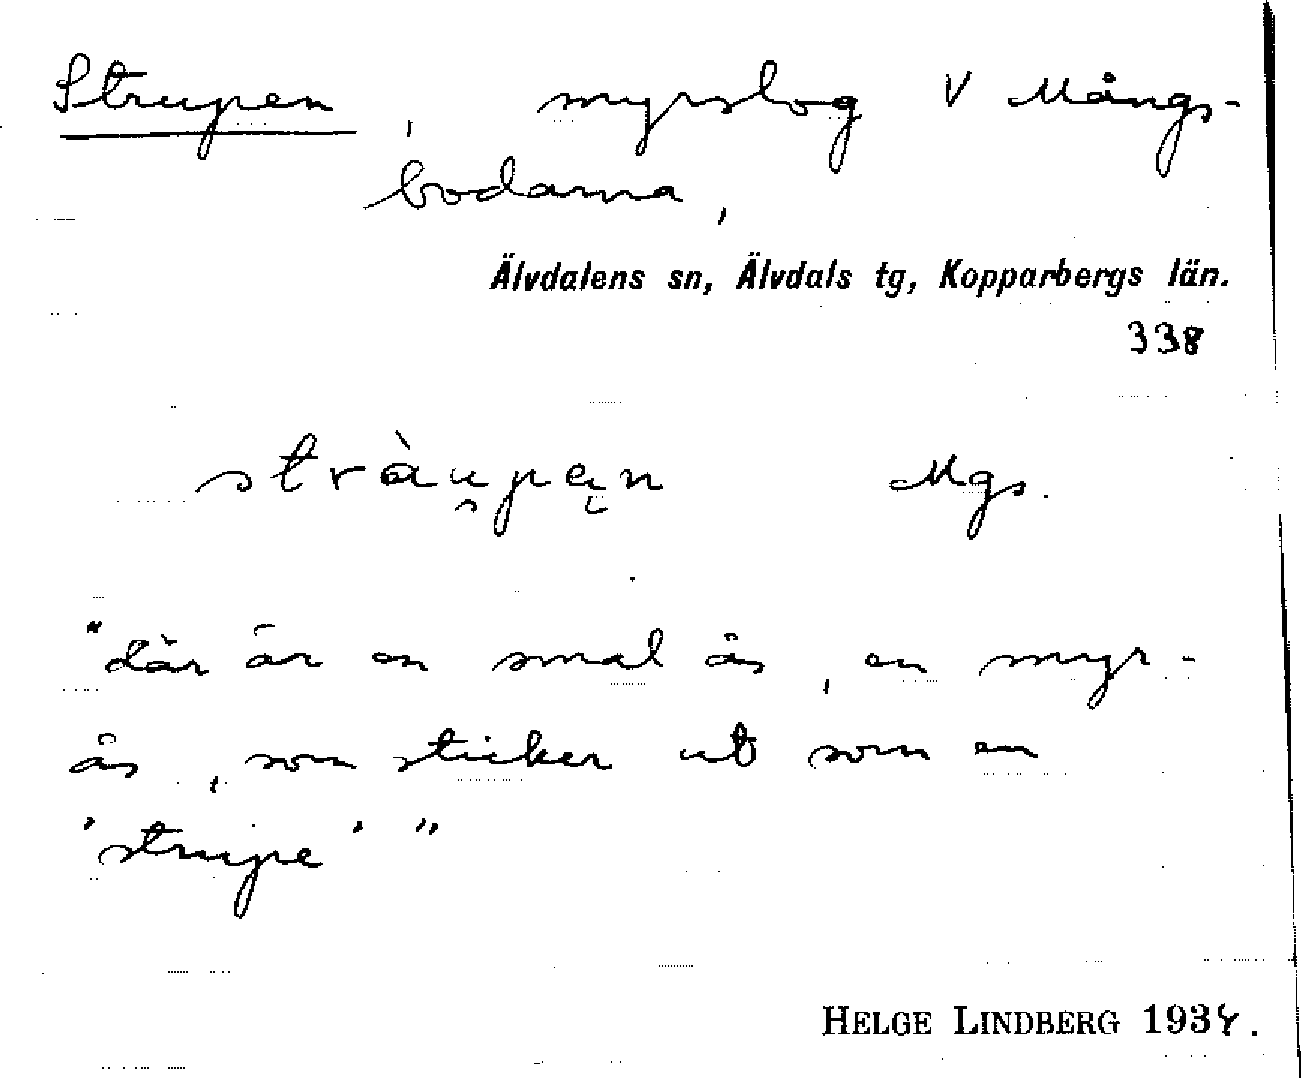 Strupen, myrslog V Mångs-
bodarna,
Älvdalens sn, Älvdals tg, Kopparbergs län.
338
stràu̯pęn Mgs.
"där är en smal ås, en myr-
ås, som sticker ut som en
'strupe'"
HELGE LINDBERG 1934.